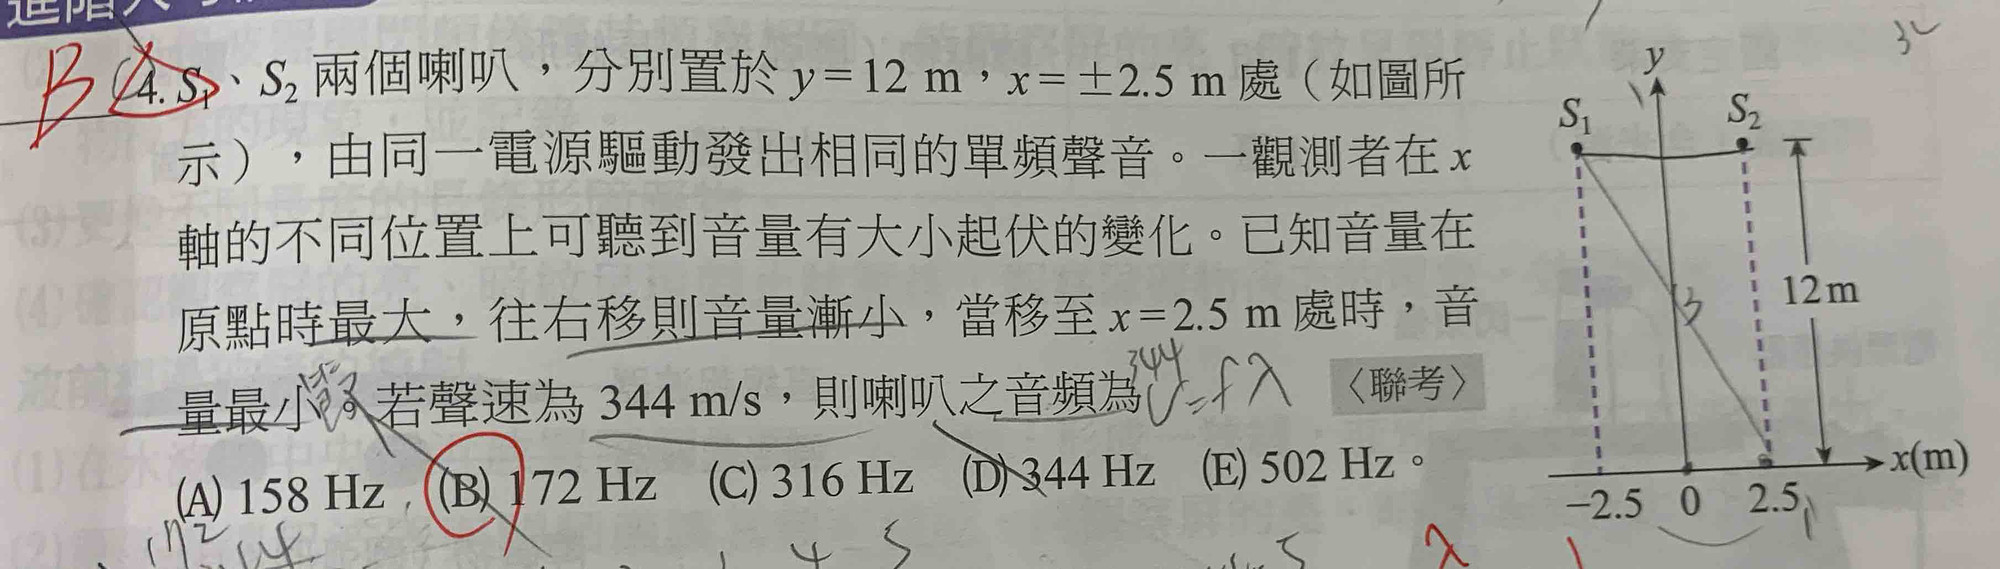 B
4. S₁、S₂ 兩個喇叭，分別置於 y=12 m，x=±2.5 m 處（如圖所
示），由同一電源驅動發出相同的單頻聲音。一觀測者在 x
軸的不同位置上可聽到音量有大小起伏的變化。已知音量在
原點時最大，往右移則音量漸小，當移至 x=2.5 m 處時，音
量最小，若聲速為 344 m/s，則喇叭之音頻為 〈聯考〉
344
V=fλ
(A) 158 Hz (B) 172 Hz (C) 316 Hz (D) 344 Hz (E) 502 Hz。
y
S₁ S₂
13
12 m
x(m)
−2.5 0 2.5
172
λ